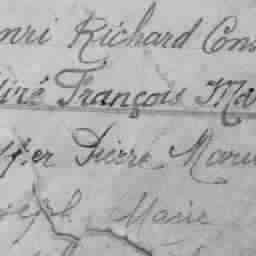 nri Richard Con
iré François Ma
er Pierre Mari
oseph Marie